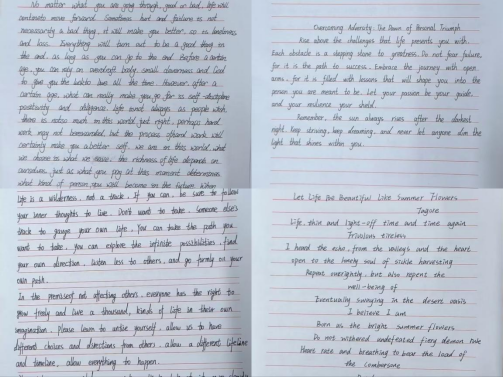 No matter what you are going through, good or bad, life will
continue move forward. Sometimes hurt and failure is not
necessarily a bad thing, it will make you better, so is loneliness
and loss. Everything will turn out to be a good thing in
the end as long as you can go to the end. Before a certain
age, you can rely on parents, body, small cleverness and God
to give you the
certain age, what can really make you go far is self-discipline
positivity and diligence. Life is not always as people wish,
there is not so much in this world, just right, perhaps hard
work may not be rewarded, but the process of hard work will
certainly make you a better self. we are in this world, what
we choose is what we receive. the richness of life depends on
ourselves, just as what you pay at this moment determines
what kind of person you will become in the future. When
Overcoming Adversity: The Dawn of Personal Triumph
Rise above the challenges that life presents you with.
Each obstacle is a stepping stone to greatness. Do not fear failure,
for it is the path to success. Embrace the journey with open
arms, for it is filled with lessons that will shape you into the
person you are meant to be. Let your passion be your guide,
and your resilience your shield.
Remember, the sun always rises after the darkest
night. Keep striving, keep dreaming, and never let anyone dim the
light that shines within you.
Life is a wilderness, not a track. If you can, be sure to follow
your inner thoughts to live. Don't want to take someone else's
track to gauge your own life. You can take the path you
want to take. You can explore the infinite possibilities, find
your own direction, listen less to others, and go firmly on your
own path.
In the premise of not affecting others, everyone has the right to
grow freely and live a thousand kinds of life in their own
imagination. Please learn to untie yourself, allow us to have
different choices and directions from others, allow a different lifeline
and timeline, allow everything to happen.
Let Life Be Beautiful Like Summer Flowers
Tagore
Life, thin and light-off time and time again
Frivolous tireless
I heard the echo, from the valleys and the heart
open to the lonely soul of sickle harvesting
Repeat outrightly, but also repeat the
well-being of
Eventually swaying in the desert oasis
I believe I am
Born as the bright summer flowers
Do not withered undefeated fiery demon rule
Heart rate and breathing to bear the load of
the cumbersome